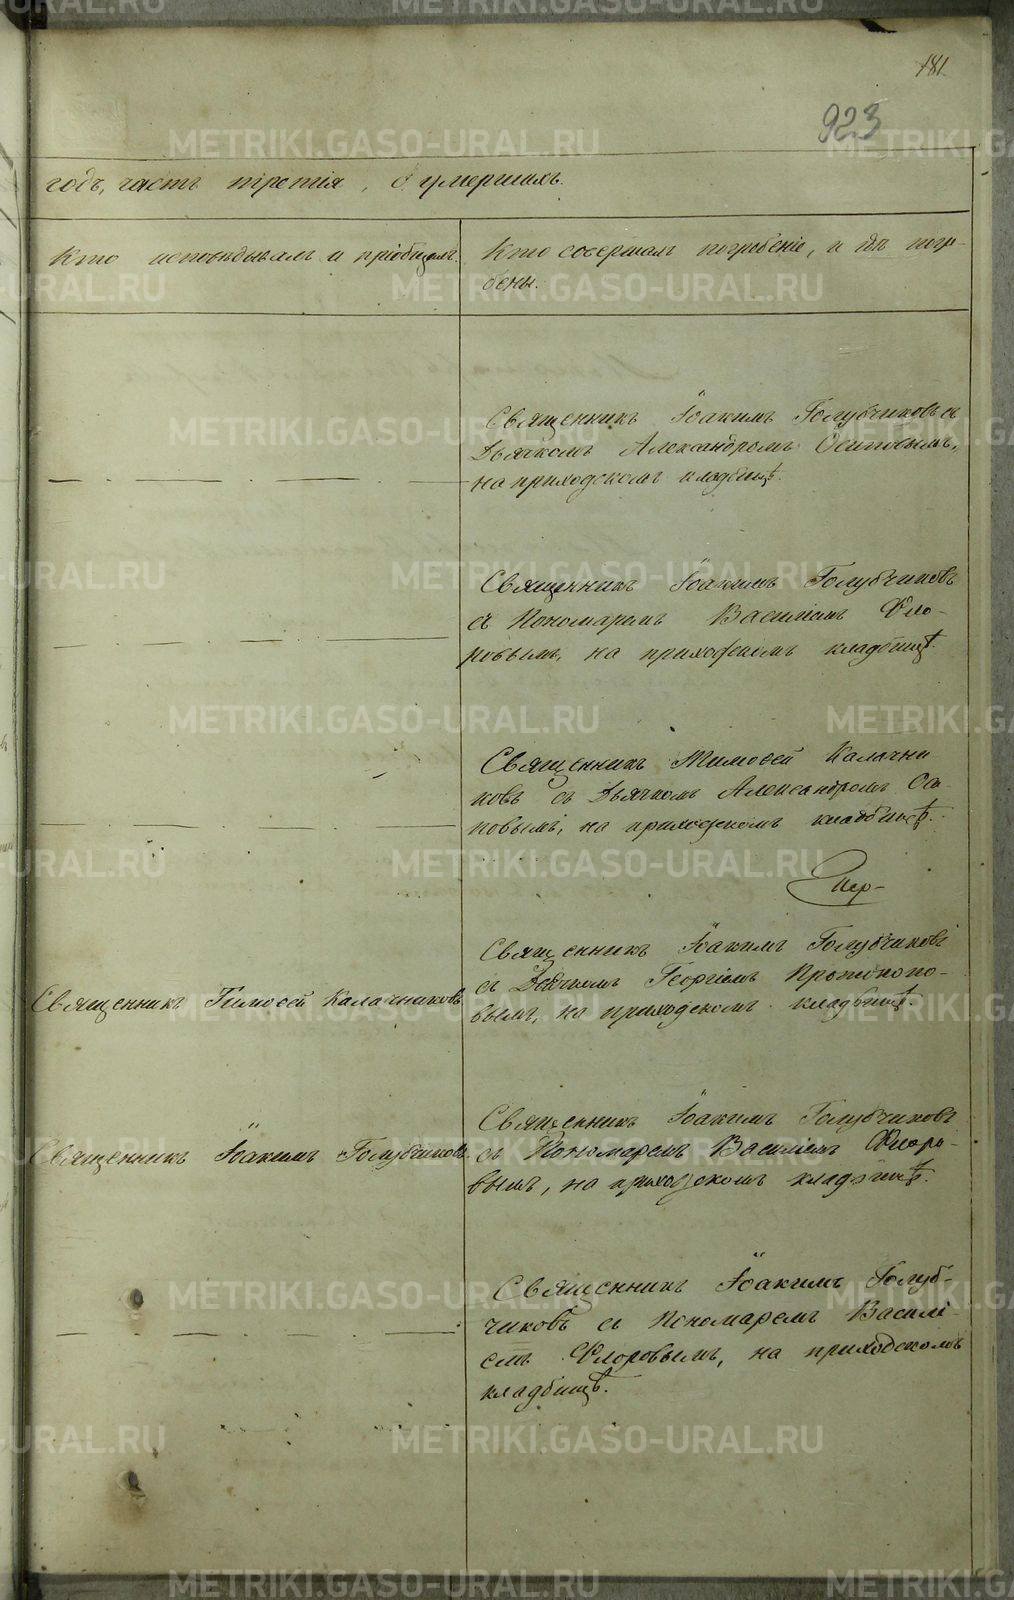 181
923
годъ, часть третія, о умершихъ.
Кто исповѣдывалъ и пріобщалъ.
Кто совершалъ погребеніе, и гдѣ погре-
бены.
Священникъ Іоакимъ Голубчиковъ съ
Дьячкомъ Александромъ Осиповымъ,
на приходскомъ кладбищѣ.
Священникъ Іоакимъ Голубчиковъ
съ Пономаремъ Василіемъ Фло-
ровымъ, на приходскомъ кладбищѣ.
Священникъ Тимофей Калачни
ковъ съ Дьячкомъ Александромъ Оси
повымъ, на приходскомъ кладбищѣ.
Священникъ Тимофей Калачниковъ
Священникъ Іоакимъ Голубчиковъ
съ Дьячкомъ Георгіемъ Протопопо-
вымъ, на приходскомъ кладбищѣ.
Священникъ Іоакимъ Голубчиковъ
Священникъ Іоакимъ Голубчиковъ
съ Пономаремъ Василіемъ Флоро-
вымъ, на приходскомъ кладбищѣ.
Священникъ Іоакимъ Голуб-
чиковъ съ Пономаремъ Василі-
емъ Флоровымъ, на приходскомъ
кладбищѣ.
METRIKI.GASO-URAL.RU